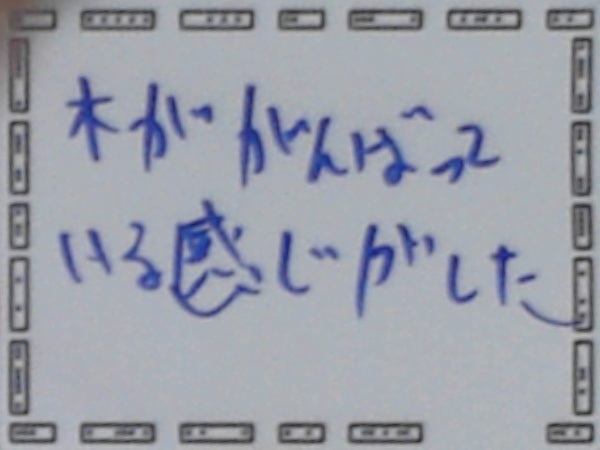 木ががんばって
いる感じがした